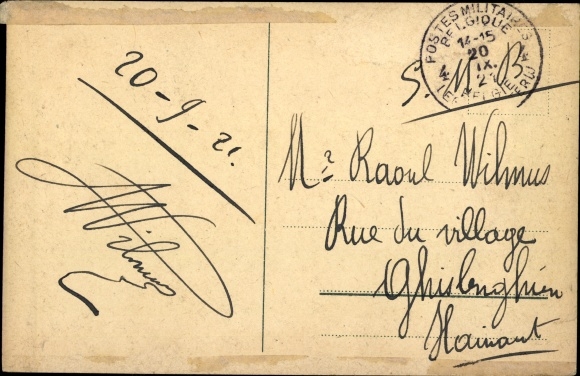 POSTES MILITAIRES
BELGIQUE
14-15
20
IX.
4
S. M. B.
20-9-21.
Wilmus
Mr Raoul Wilmus
Rue du village
Ghislenghien
Hainaut